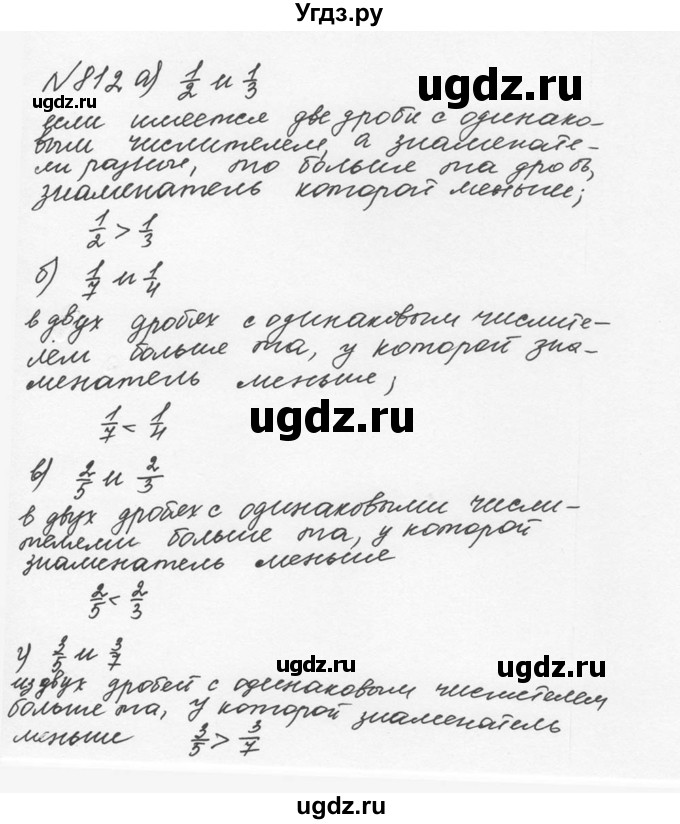 Угдз.ру
№812 а) 1/2 и 1/3
если имеется две дроби с одинако-
выми числителем, а знаменате-
ли разные, то больше та дробь,
знаменатель которой меньше;
1/2 > 1/3
б) 1/7 и 1/4
в двух дробях с одинаковым числите-
лем больше та, у которой зна-
менатель меньше;
1/7 < 1/4
в) 2/5 и 2/3
в двух дробях с одинаковыми числи-
телями больше та, у которой
знаменатель меньше
2/5 < 2/3
г) 3/5 и 3/7
из двух дробей с одинаковым числителем
больше та, у которой знаменатель
меньше 3/5 > 3/7
ugdz.ru
ugdz.ru
ugdz.ru
ugdz.ru
ugdz.ru
ugdz.ru
ugdz.ru
ugdz.ru